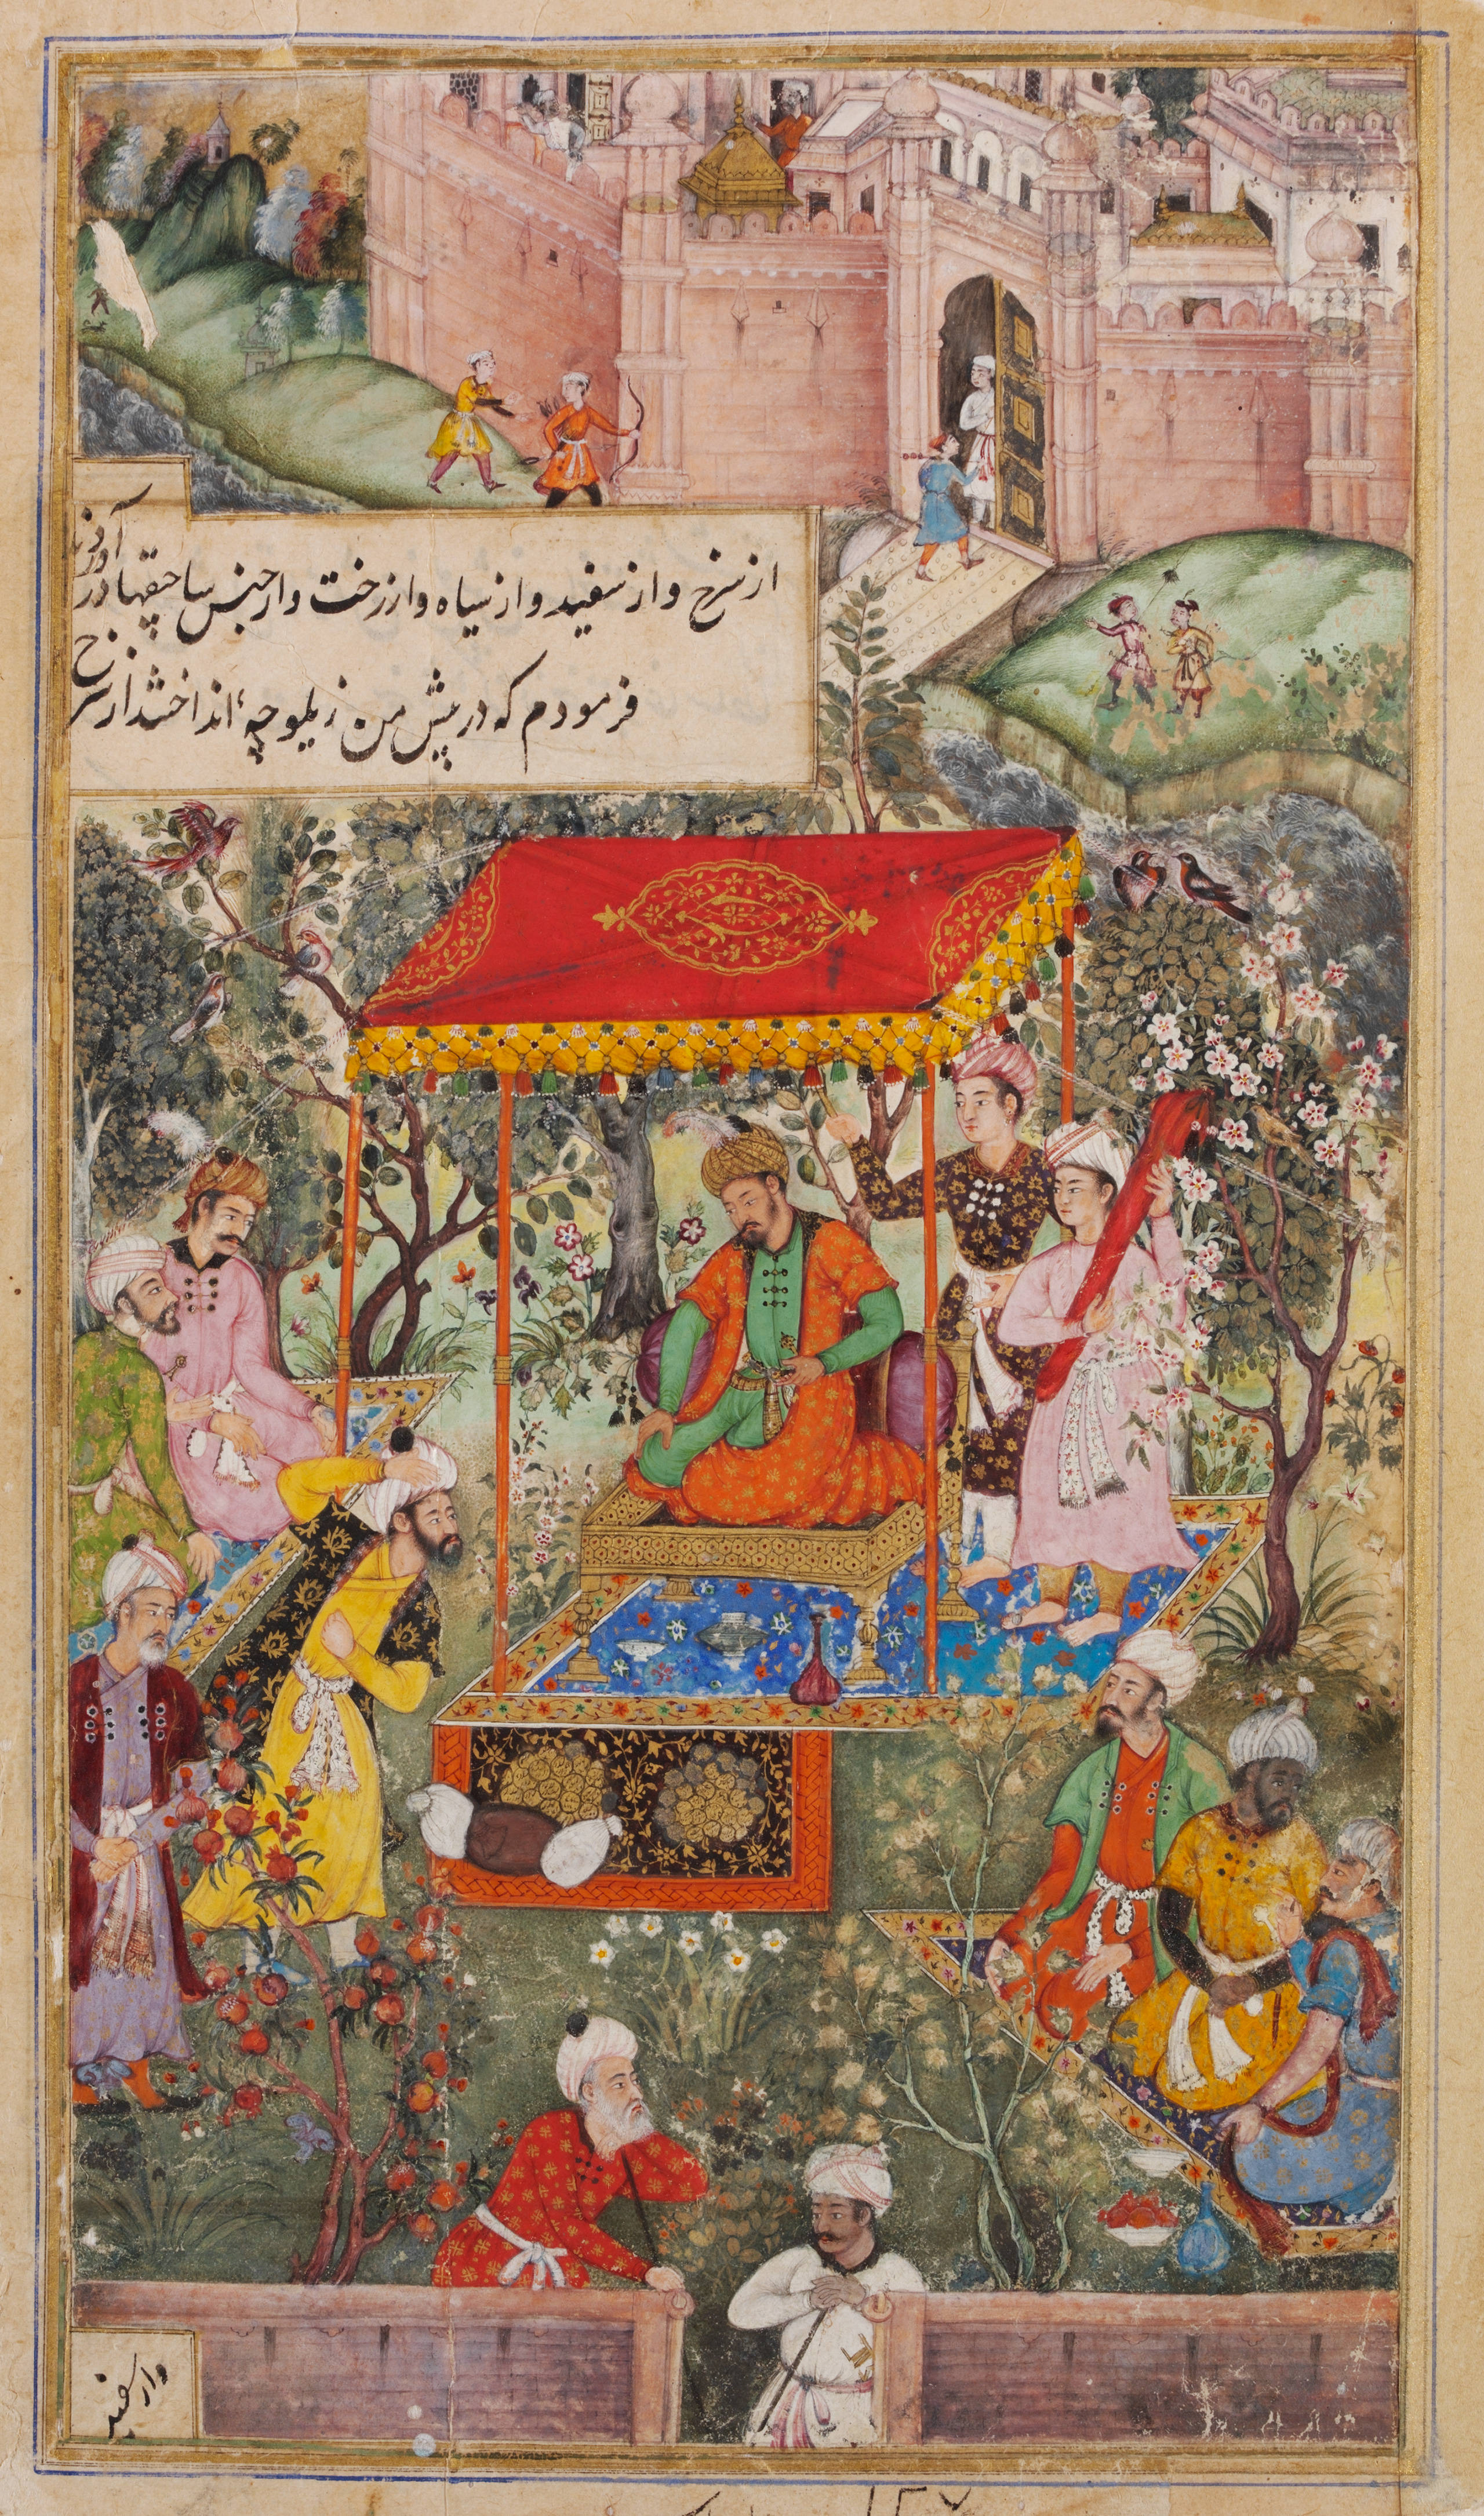 از سرخ و از سفید و از سیاه و از رخت و از جنس ساچقها در آوردند
فرمودم که در پیش من زیلوچه انداختند از سرخ
و از سفید
۱۲۷